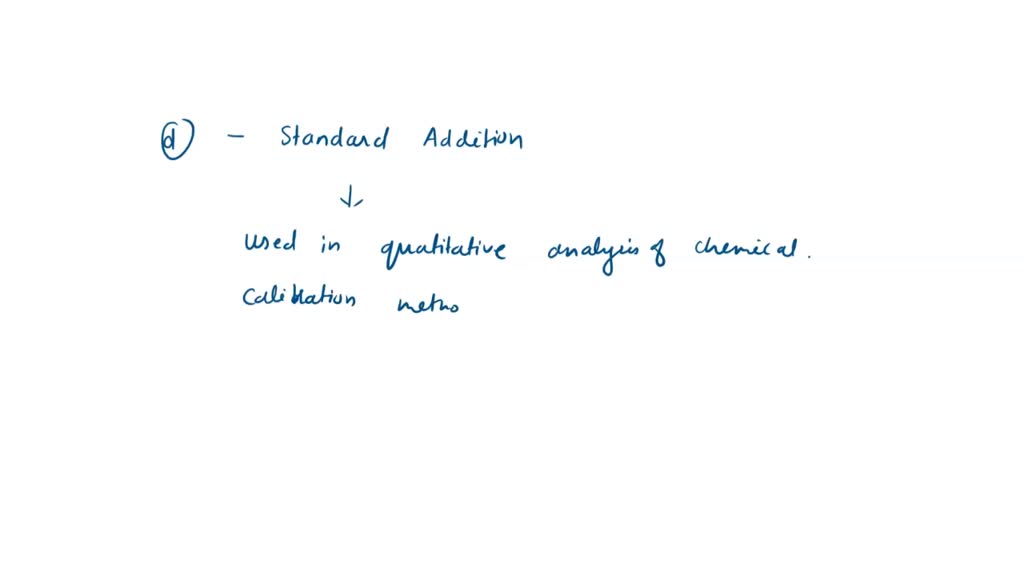 (d) - Standard Addition
↓
used in quatitative analysis of chemical.
Calibration metho